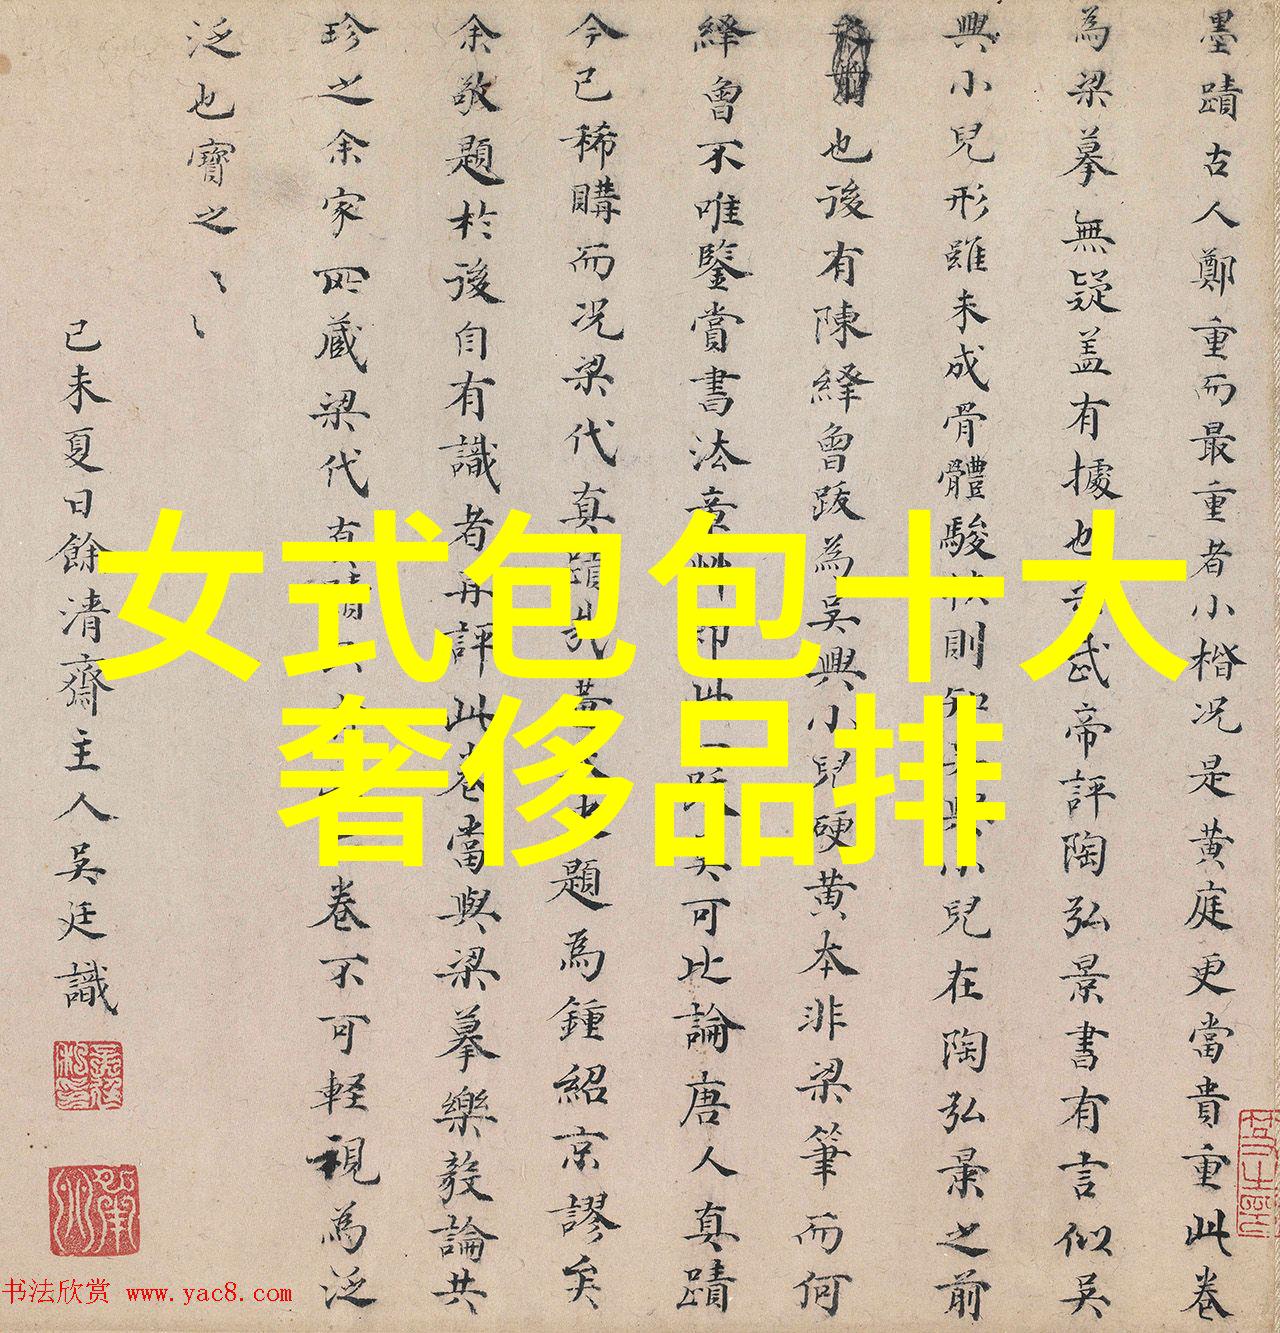 墨蹟古人鄭重而最重者小楷况是黄庭更當貴重此卷
為梁摹無疑盖有據也武帝評陶弘景書有言似吴
興小兒形雖未成骨體駿則知興小兒在陶弘景之前
也後有陳繹曾跋為吴興小兒硬黄本非梁筆而何
繹曾不唯鑒賞書法章草即此一跋可比論唐人真蹟
今已稀購而况梁代真蹟題為鍾紹京謬矣
余敬題於後自有識者再評此卷當與梁摹樂毅論共
珍之余家所蔵梁代卷不可軽視為泛
泛也寶之
己未夏日餘清齋主人吴廷識
女式包包十大
奢侈品排
书法欣赏 www.yac8.com